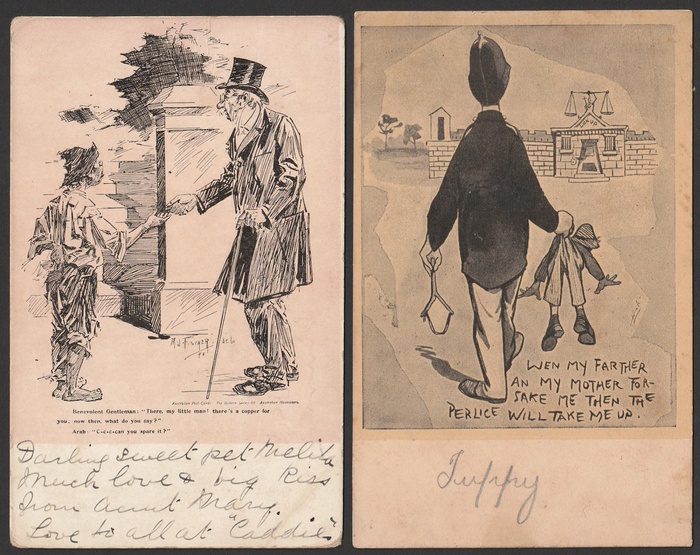 A.J. Fischer
Australian Post-Cards. The Bulletin Series
Benevolent Gentleman: "There, my little man! there's a copper for
you; now then, what do you say?"
Arab: "C-c-c-can you spare it?"
Darling sweet pet Melita
Much love & big kiss
from Aunt Mary.
Love to all at "Caddie"
WEN MY FARTHER
AN MY MOTHER FOR-
SAKE ME THEN THE
PERLICE WILL TAKE ME UP.
Tuppy